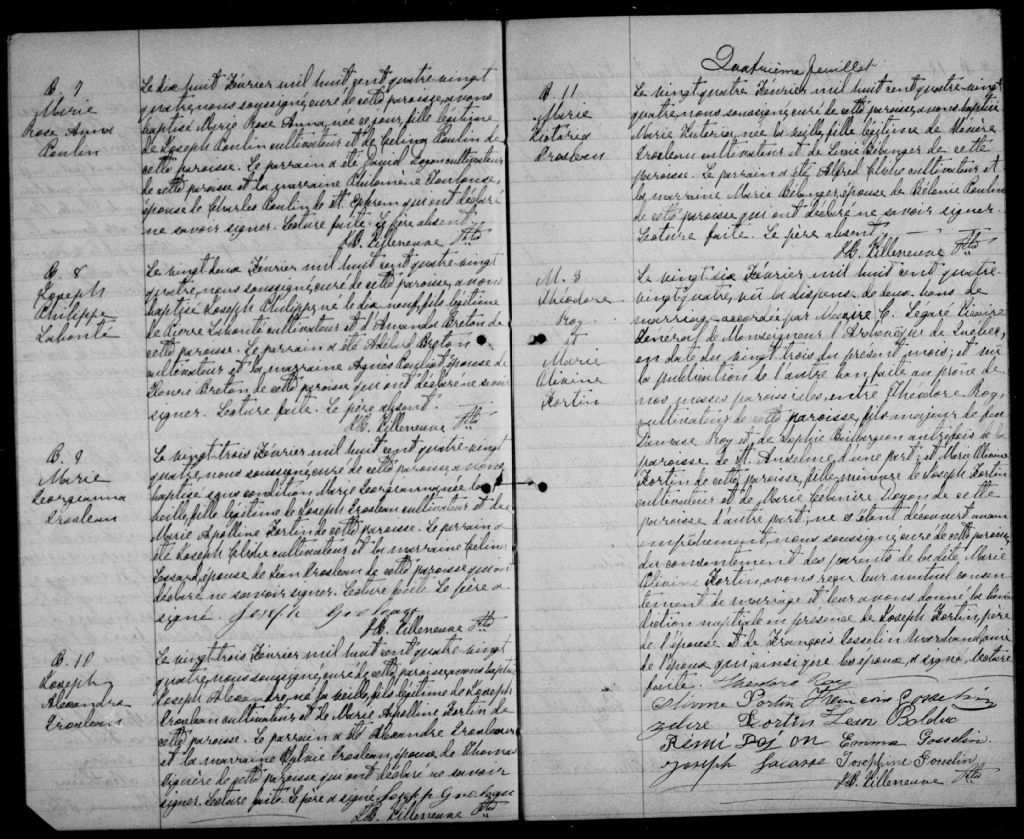 B. 7
Marie
Rose Anna
Poulin
Le dix huit Février mil huit cent quatre-vingt
quatre, nous soussigné, curé de cette paroisse, avons
baptisé Marie Rose Anna, née ce jour, fille légitime
de Joseph Poulin cultivateur et de Célina Poulin de
cette paroisse. Le parrain a été David Doyon cultivateur
de cette paroisse et la marraine Philomène Toulouse,
épouse de Charles Poulin de St. Ephrem qui ont déclaré
ne savoir signer. Lecture faite. Le père absent.
J.B. Villeneuve Ptre
B. 8
Joseph
Philippe
Lahonté
Le vingt deux Février mil huit cent quatre-vingt
quatre, nous soussigné, curé de cette paroisse, avons
baptisé Joseph Philippe, né le dix neuf, fils légitime
de Pierre Lahonté cultivateur et d'Amanda Breton de
cette paroisse. Le parrain a été Adélard Breton
cultivateur et la marraine Agnès Pouliot épouse de
Henri Breton de cette paroisse qui ont déclaré ne savoir
signer. Lecture faite. Le père absent.
J.B. Villeneuve Ptre
B. 9
Marie
Georgianna
Grosleau
Le vingt-trois Février mil huit cent quatre-vingt
quatre, nous soussigné, curé de cette paroisse, avons
baptisé sous condition Marie Georgianna, née la
veille, fille légitime de Joseph Grosleau cultivateur et de
Marie Apolline Fortin de cette paroisse. Le parrain a
été Joseph Cliche cultivateur et la marraine Célina
Lessard, épouse de Jean Grosleau de cette paroisse qui ont
déclaré ne savoir signer. Lecture faite. Le père a
signé. Joseph
J.B. Villeneuve Ptre
B. 10
Joseph
Alexandre
Grosleau
Le vingt trois Février mil huit cent quatre-vingt
quatre, nous soussigné, curé de cette paroisse, avons baptisé
Joseph Alexandre, né la veille, fils légitime de Joseph
Grosleau cultivateur et de Marie Apolline Fortin de
cette paroisse. Le parrain a été Alexandre Grosleau
et la marraine Grosleau, épouse de Thomas
de cette paroisse qui ont déclaré ne savoir
signer. Lecture faite. Le père a signé Joseph
J.B. Villeneuve Ptre
Quatrième feuillet
B. 11
Marie
Victoria
Grosleau
Le vingt quatre Février mil huit cent quatre-vingt
quatre, nous soussigné, curé de cette paroisse, avons baptisé
Marie Victoria, née la veille, fille légitime de
Grosleau cultivateur et de Bélanger de cette
paroisse. Le parrain a été Alfred Cliche cultivateur et
la marraine Marie Bélanger, épouse de Bélonie Poulin
de cette paroisse qui ont déclaré ne savoir signer.
Lecture faite. Le père absent.
J.B. Villeneuve Ptre
M. 3
Théodore
Roy
et
Marie
Olivine
Fortin
Le vingt six Février mil huit cent quatre-
vingt-quatre, vu la dispense de deux bans de
mariage accordée par Messire C. Légaré Vicaire
Général de Monseigneur l'Archevêque de Québec,
en date du vingt trois du présent mois, et vu
la publication de l'autre ban faite au prône de
nos messes paroissiales, entre Théodore Roy,
cultivateur de cette paroisse, fils majeur de feu
Damase Roy et de Sophie Baillargeon autrefois de la
paroisse de St. Anselme, d'une part; et Marie Olivine
Fortin de cette paroisse, fille mineure de Joseph Fortin
cultivateur et de Marie Doyon de cette
paroisse d'autre part; ne s'étant découvert aucun
empêchement, nous soussigné, curé de cette paroisse,
du consentement des parents de la dite Marie
Olivine Fortin, avons reçu leur mutuel consen-
tement de mariage et leur avons donné la béné-
diction nuptiale en présence de Joseph Fortin, père
de l'épouse et de François Gosselin
de l'époux qui, ainsi que les époux, a signé, lecture
faite. Théodore Roy
Olivine Fortin François Gosselin
Fortin Leon Bolduc
Rémi Doyon Emma Gosselin
Joseph Lacasse Josephine Gosselin
J.B. Villeneuve Ptre